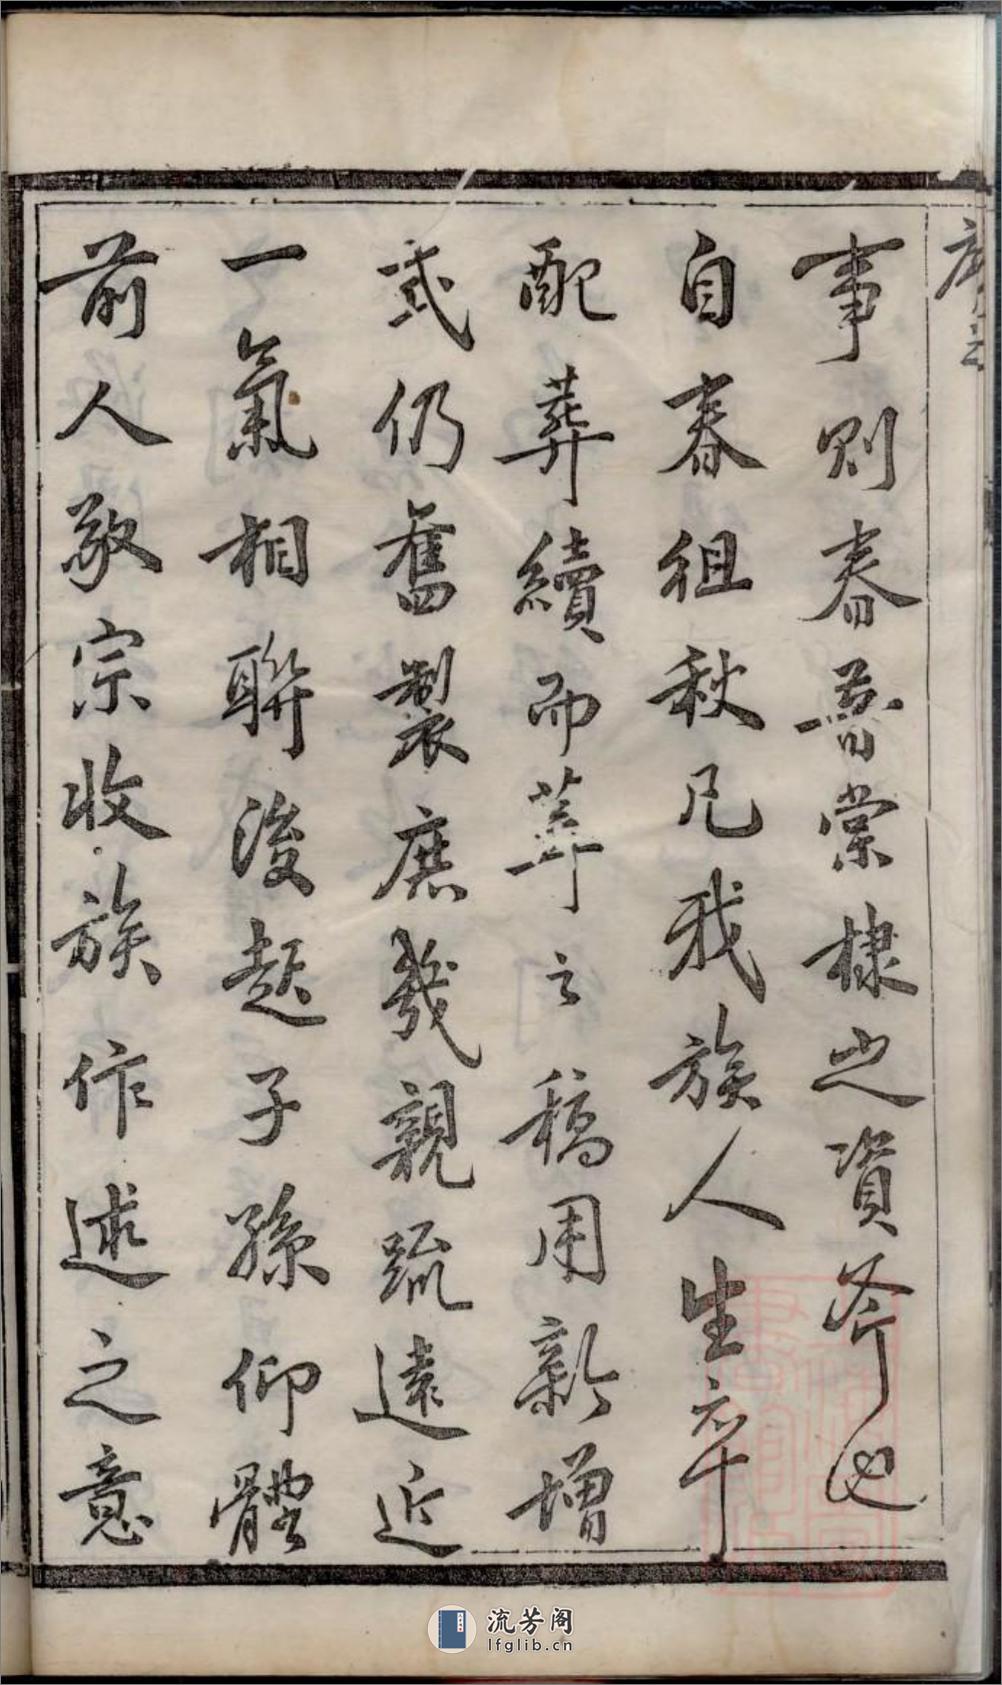 事則春嘗棠棣之資斧也
自春徂秋凡我族人生卒
配葬續而葺之稿用新增
式仍舊製庶幾親疏遠近
一氣相聯後起子孫仰體
前人敬宗收族作述之意
流芳阁
lfglib.cn